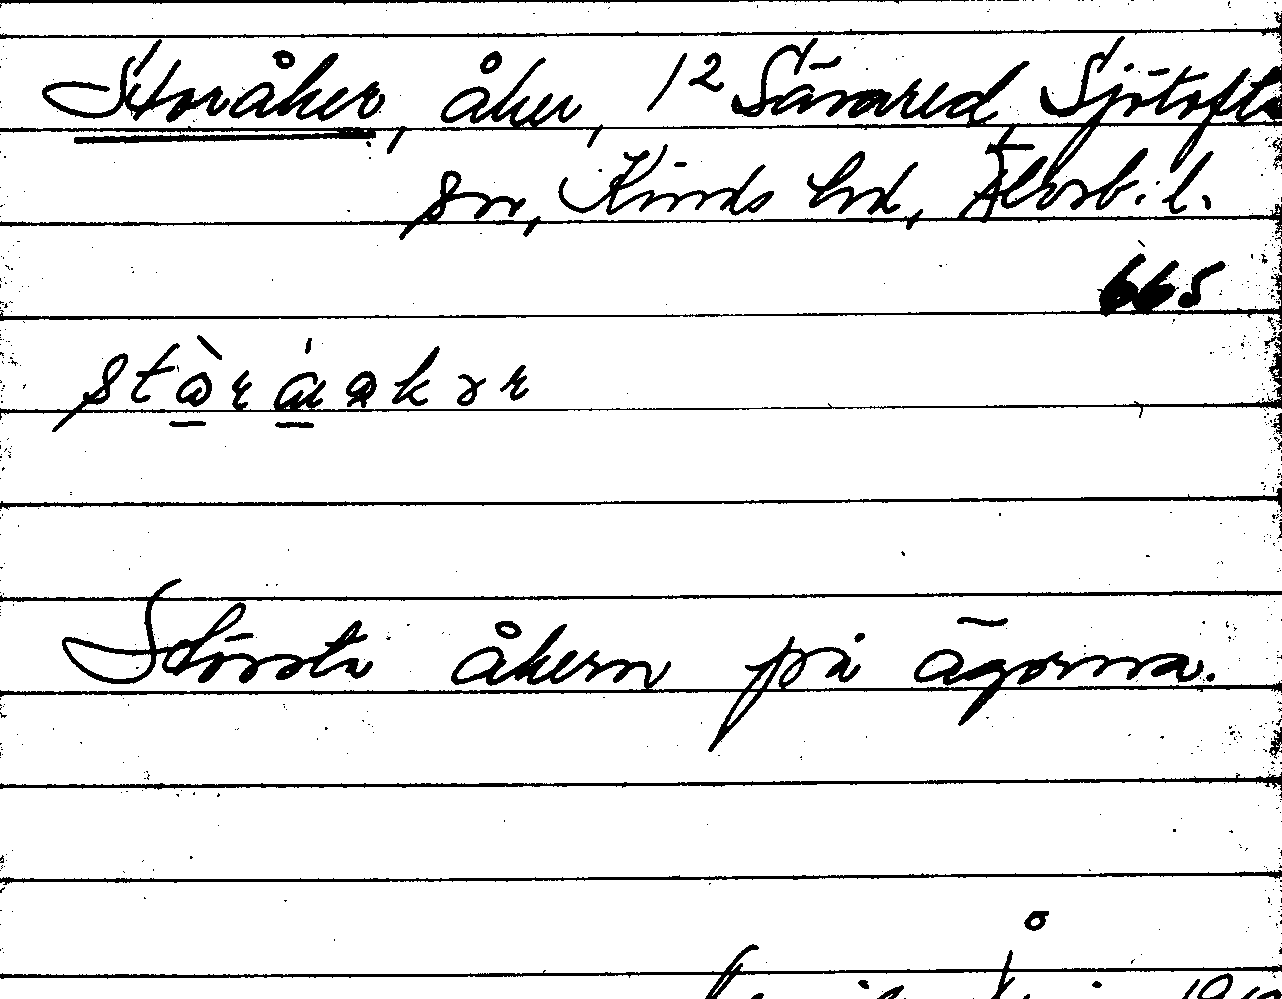 Storåker, åker, 1² Sävared, Sjötofta
sn, Kinds hd, Älvsb. l.
665
Största åkern på ägorna.